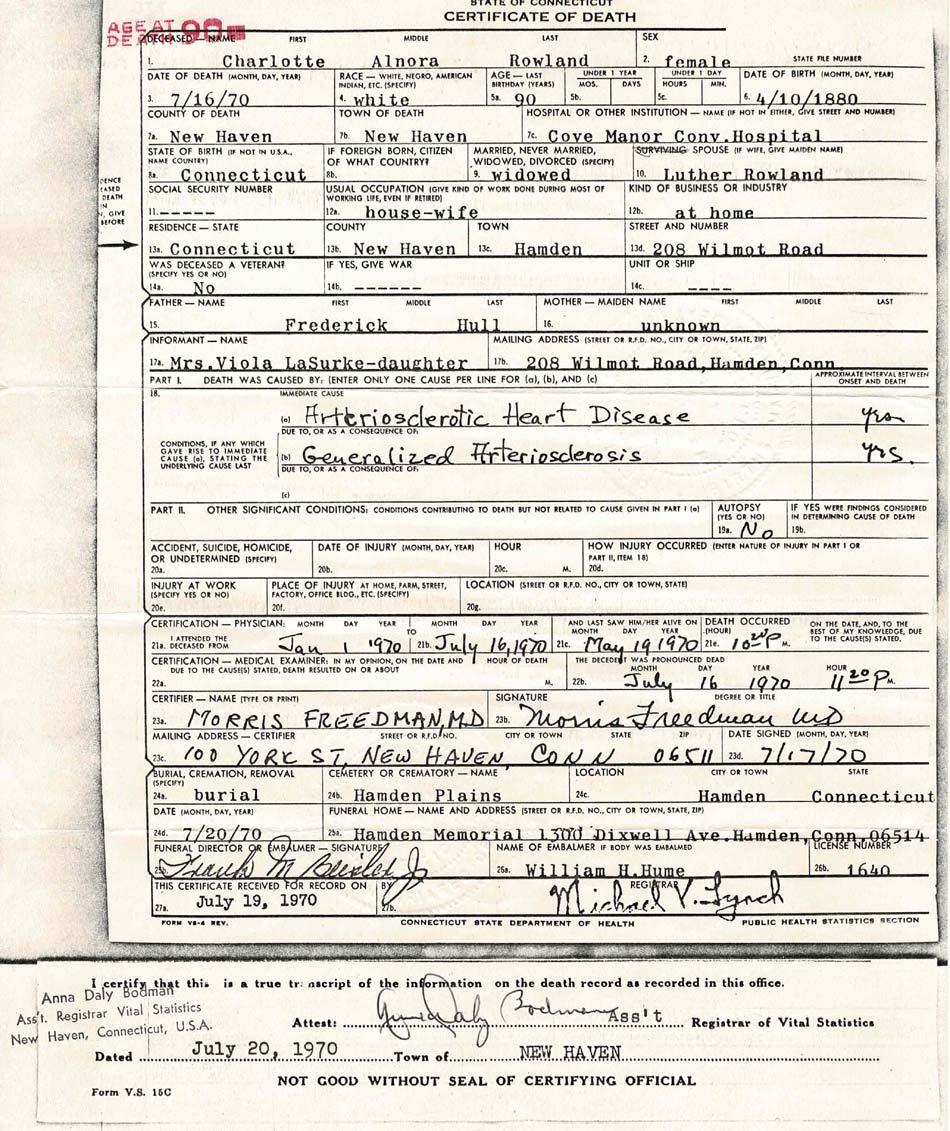 STATE OF CONNECTICUT
CERTIFICATE OF DEATH
AGE AT
DECEASED — NAME FIRST MIDDLE LAST SEX
1. Charlotte Alnora Rowland 2. female STATE FILE NUMBER
DATE OF DEATH (MONTH, DAY, YEAR) RACE — WHITE, NEGRO, AMERICAN INDIAN, ETC. (SPECIFY) AGE — LAST BIRTHDAY (YEARS) UNDER 1 YEAR MOS. DAYS UNDER 1 DAY HOURS MIN. DATE OF BIRTH (MONTH, DAY, YEAR)
3. 7/16/70 4. white 5a. 90 5b. 5c. 6. 4/10/1880
COUNTY OF DEATH TOWN OF DEATH HOSPITAL OR OTHER INSTITUTION — NAME (IF NOT IN EITHER, GIVE STREET AND NUMBER)
7a. New Haven 7b. New Haven 7c. Cove Manor Conv.Hospital
STATE OF BIRTH (IF NOT IN U.S.A., NAME COUNTRY) IF FOREIGN BORN, CITIZEN OF WHAT COUNTRY? MARRIED, NEVER MARRIED, WIDOWED, DIVORCED (SPECIFY) SURVIVING SPOUSE (IF WIFE, GIVE MAIDEN NAME)
8a. Connecticut 8b. 9. widowed 10. Luther Rowland
SOCIAL SECURITY NUMBER USUAL OCCUPATION (GIVE KIND OF WORK DONE DURING MOST OF WORKING LIFE, EVEN IF RETIRED) KIND OF BUSINESS OR INDUSTRY
11. ----- 12a. house-wife 12b. at home
RESIDENCE — STATE COUNTY TOWN STREET AND NUMBER
13a. Connecticut 13b. New Haven 13c. Hamden 13d. 208 Wilmot Road
WAS DECEASED A VETERAN? (SPECIFY YES OR NO) IF YES, GIVE WAR UNIT OR SHIP
14a. No 14b. ------ 14c. ----
FATHER — NAME FIRST MIDDLE LAST MOTHER — MAIDEN NAME FIRST MIDDLE LAST
15. Frederick Hull 16. unknown
INFORMANT — NAME MAILING ADDRESS (STREET OR R.F.D. NO., CITY OR TOWN, STATE, ZIP)
17a. Mrs.Viola LaSurke-daughter 17b. 208 Wilmot Road,Hamden,Conn
PART I. DEATH WAS CAUSED BY: (ENTER ONLY ONE CAUSE PER LINE FOR (a), (b), AND (c) APPROXIMATE INTERVAL BETWEEN ONSET AND DEATH
18. IMMEDIATE CAUSE
(a) Arteriosclerotic Heart Disease yrs
DUE TO, OR AS A CONSEQUENCE OF:
CONDITIONS, IF ANY WHICH GAVE RISE TO IMMEDIATE CAUSE (a), STATING THE UNDERLYING CAUSE LAST
(b) Generalized Arteriosclerosis yrs.
DUE TO, OR AS A CONSEQUENCE OF:
(c)
PART II. OTHER SIGNIFICANT CONDITIONS: CONDITIONS CONTRIBUTING TO DEATH BUT NOT RELATED TO CAUSE GIVEN IN PART I (a) AUTOPSY (YES OR NO) IF YES WERE FINDINGS CONSIDERED IN DETERMINING CAUSE OF DEATH
19a. No 19b.
ACCIDENT, SUICIDE, HOMICIDE, OR UNDETERMINED (SPECIFY) DATE OF INJURY (MONTH, DAY, YEAR) HOUR HOW INJURY OCCURRED (ENTER NATURE OF INJURY IN PART I OR PART II, ITEM 18)
20a. 20b. 20c. M. 20d.
INJURY AT WORK (SPECIFY YES OR NO) PLACE OF INJURY AT HOME, FARM, STREET, FACTORY, OFFICE BLDG., ETC. (SPECIFY) LOCATION (STREET OR R.F.D. NO., CITY OR TOWN, STATE)
20e. 20f. 20g.
CERTIFICATION — PHYSICIAN: MONTH DAY YEAR TO MONTH DAY YEAR AND LAST SAW HIM/HER ALIVE ON MONTH DAY YEAR DEATH OCCURRED (HOUR) ON THE DATE, AND, TO THE BEST OF MY KNOWLEDGE, DUE TO THE CAUSE(S) STATED.
21a. I ATTENDED THE DECEASED FROM Jan 1 1970 21b. July 16, 1970 21c. May 19 1970 21e. 10 20 P M.
CERTIFICATION — MEDICAL EXAMINER: IN MY OPINION, ON THE DATE AND DUE TO THE CAUSE(S) STATED, DEATH RESULTED ON OR ABOUT HOUR OF DEATH THE DECEDENT WAS PRONOUNCED DEAD MONTH DAY YEAR HOUR
22a. M. 22b. July 16 1970 11 20 P M.
CERTIFIER — NAME (TYPE OR PRINT) SIGNATURE DEGREE OR TITLE
23a. MORRIS FREEDMAN, M.D 23b. Morris Freedman MD
MAILING ADDRESS — CERTIFIER STREET OR R.F.D. NO. CITY OR TOWN STATE ZIP DATE SIGNED (MONTH, DAY, YEAR)
23c. 100 YORK ST, NEW HAVEN, CONN 06511 23d. 7/17/70
BURIAL, CREMATION, REMOVAL (SPECIFY) CEMETERY OR CREMATORY — NAME LOCATION CITY OR TOWN STATE
24a. burial 24b. Hamden Plains 24c. Hamden Connecticut
DATE (MONTH, DAY, YEAR) FUNERAL HOME — NAME AND ADDRESS (STREET OR R.F.D. NO., CITY OR TOWN, STATE, ZIP)
24d. 7/20/70 25a. Hamden Memorial 1300 Dixwell Ave.Hamden,Conn.06514
FUNERAL DIRECTOR OR EMBALMER — SIGNATURE NAME OF EMBALMER IF BODY WAS EMBALMED LICENSE NUMBER
25b. Frank M 26a. William H.Hume 26b. 1640
THIS CERTIFICATE RECEIVED FOR RECORD ON BY REGISTRAR
27a. July 19, 1970 27b. Michael V. Lynch
FORM VS-4 REV. CONNECTICUT STATE DEPARTMENT OF HEALTH PUBLIC HEALTH STATISTICS SECTION
I certify that this is a true transcript of the information on the death record as recorded in this office.
Anna Daly Bodman
Ass't. Registrar Vital Statistics
New Haven, Connecticut, U.S.A.
Attest: Anna Daly Bodman Ass't Registrar of Vital Statistics
Dated July 20, 1970 Town of NEW HAVEN
NOT GOOD WITHOUT SEAL OF CERTIFYING OFFICIAL
Form V.S. 15C